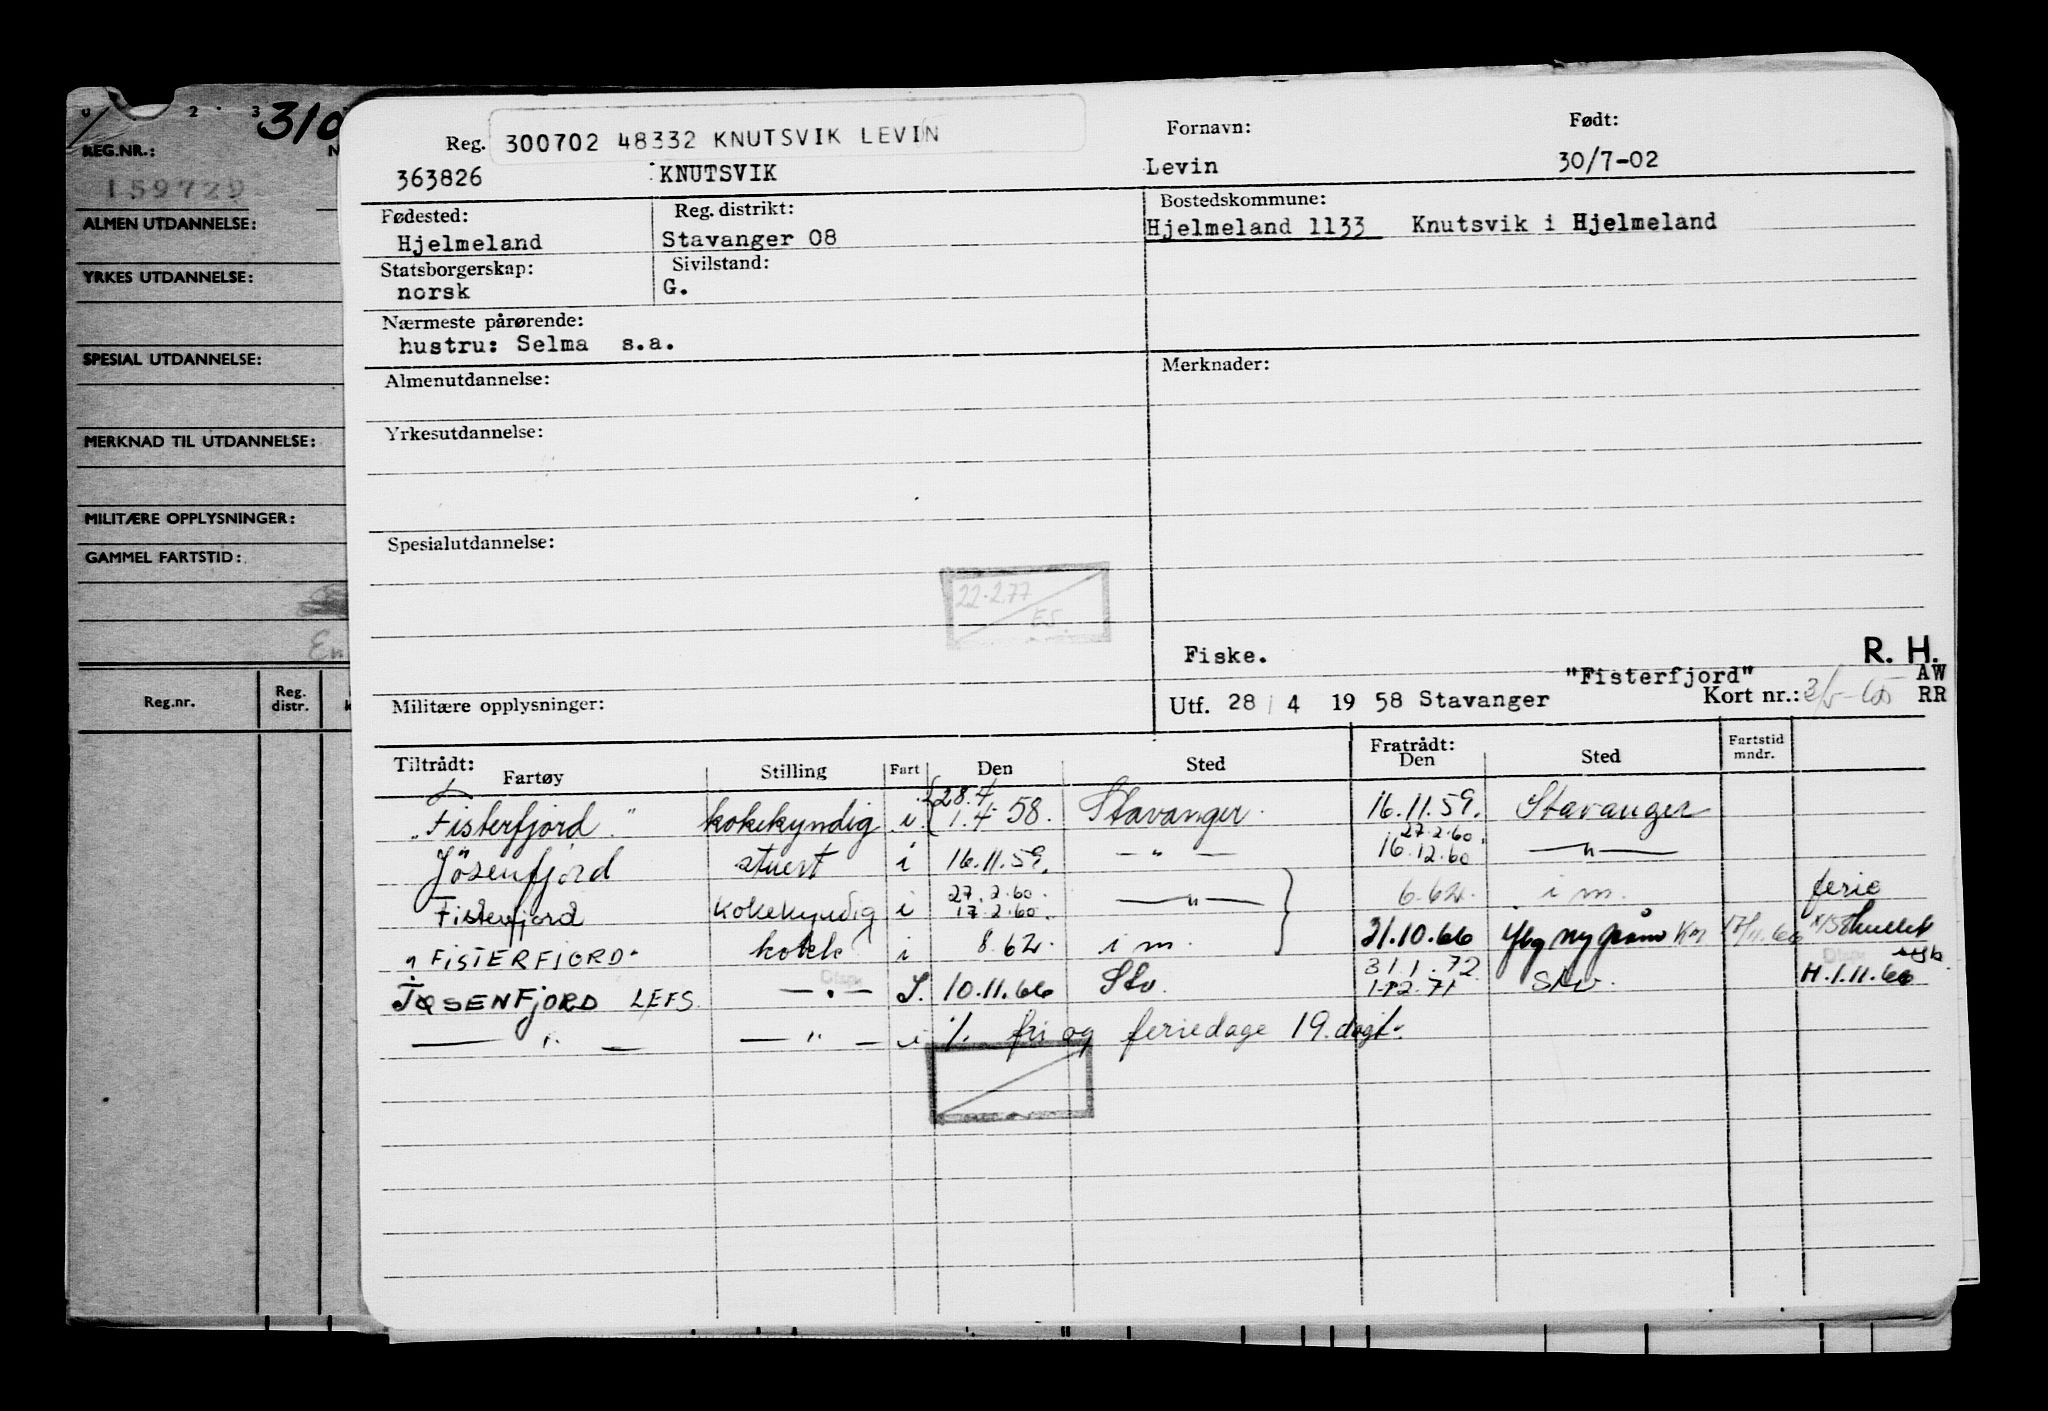 0 2 3 310
REG.NR.: N
159729
ALMEN UTDANNELSE:
YRKES UTDANNELSE:
SPESIAL UTDANNELSE:
MERKNAD TIL UTDANNELSE:
MILITÆRE OPPLYSNINGER:
GAMMEL FARTSTID:
En
Reg.nr. Reg. distr. k
Reg. 300702 48332 KNUTSVIK LEVIN Fornavn: Født:
363826 KNUTSVIK Levin 30/7-02
Fødested: Reg. distrikt: Bostedskommune:
Hjelmeland Stavanger 08 Hjelmeland 1133 Knutsvik i Hjelmeland
Statsborgerskap: Sivilstand:
norsk G.
Nærmeste pårørende:
hustru: Selma s.a.
Almenutdannelse: Merknader:
Yrkesutdannelse:
Spesialutdannelse:
22.2.77
ES.
Fiske. R. H.
"Fisterfjord" AW
Militære opplysninger: Utf. 28/4 1958 Stavanger Kort nr.: RR
Tiltrådt: Fratrådt:
Fartøy Stilling Fart Den Sted Den Sted Fartstid mndr.
28.4
"Fisterfjord" kokekyndig i 1.4 58. Stavanger. 16.11.59. Stavanger
27.2.60
Jösenfjord stuert i 16.11.59. — " — 16.12.60 — " —
27.2.60.
Fisterfjord kokekyndig i 17.2.60. — " — 6.62. i m. ferie
" FISTERFJORD" kokk i 8.62. i m. 31.10.66 ny
31.1.72
JØSENFJORD LEFS. — " — S. 10.11.66 Stv. 1.12.71 Stv. H.1.11.66
— " — — " — i %. fri og feriedage 19. dagt.